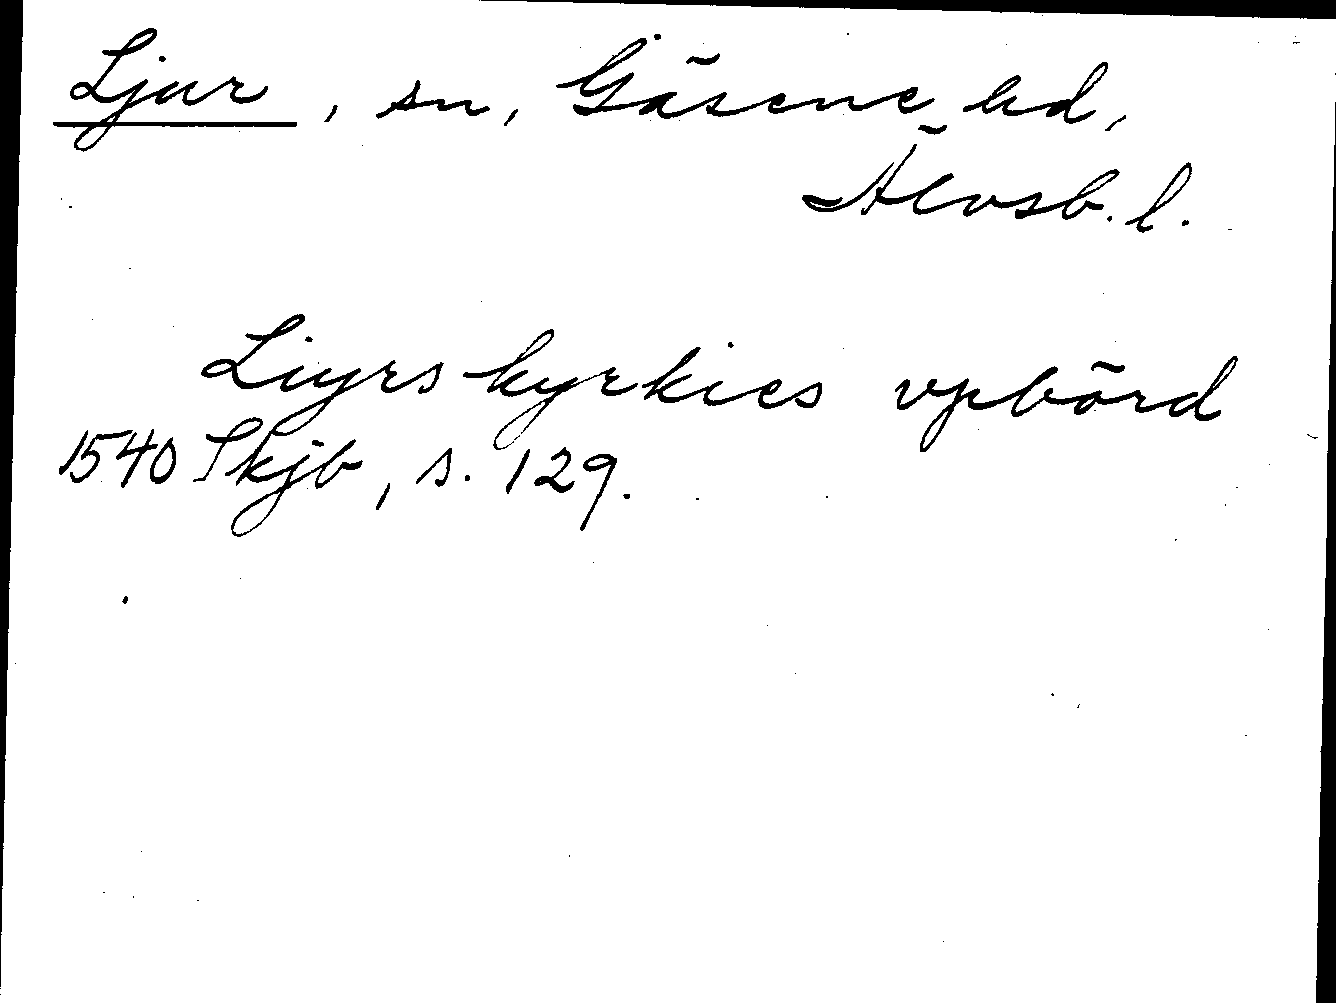 Ljur, sn, Gäsene hd,
Älvsb. l.
Liyrs kyrkies vpbörd
1540 Skjb, s. 129.